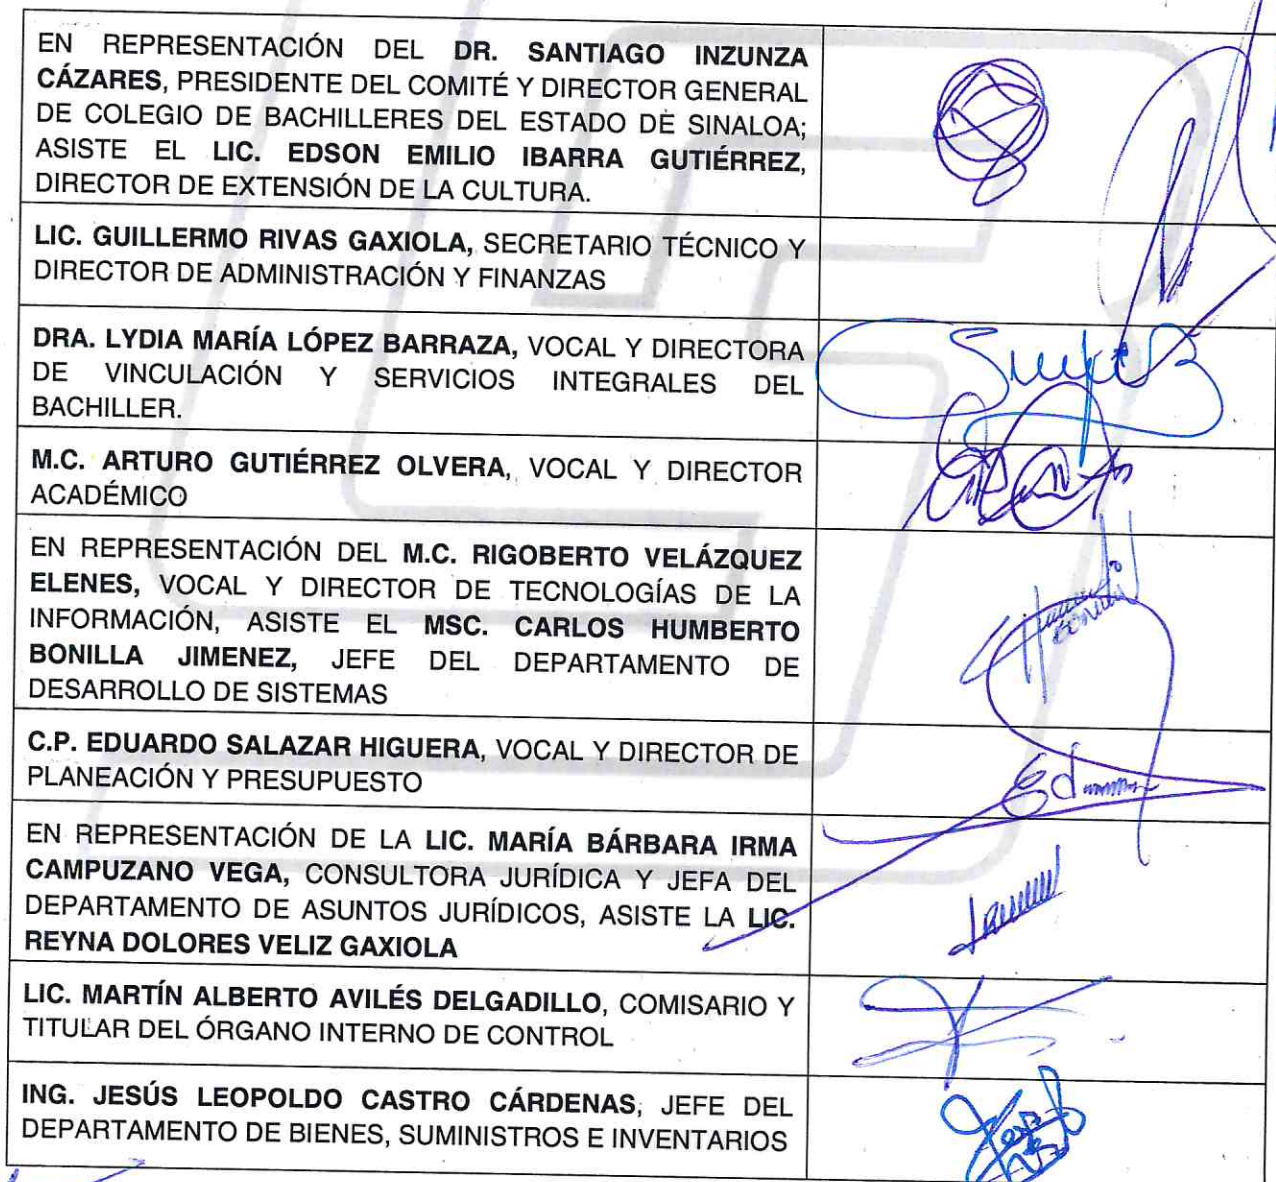 EN REPRESENTACIÓN DEL DR. SANTIAGO INZUNZA
CÁZARES, PRESIDENTE DEL COMITÉ Y DIRECTOR GENERAL
DE COLEGIO DE BACHILLERES DEL ESTADO DE SINALOA;
ASISTE EL LIC. EDSON EMILIO IBARRA GUTIÉRREZ,
DIRECTOR DE EXTENSIÓN DE LA CULTURA.
LIC. GUILLERMO RIVAS GAXIOLA, SECRETARIO TÉCNICO Y
DIRECTOR DE ADMINISTRACIÓN Y FINANZAS
DRA. LYDIA MARÍA LÓPEZ BARRAZA, VOCAL Y DIRECTORA
DE VINCULACIÓN Y SERVICIOS INTEGRALES DEL
BACHILLER.
M.C. ARTURO GUTIÉRREZ OLVERA, VOCAL Y DIRECTOR
ACADÉMICO
EN REPRESENTACIÓN DEL M.C. RIGOBERTO VELÁZQUEZ
ELENES, VOCAL Y DIRECTOR DE TECNOLOGÍAS DE LA
INFORMACIÓN, ASISTE EL MSC. CARLOS HUMBERTO
BONILLA JIMENEZ, JEFE DEL DEPARTAMENTO DE
DESARROLLO DE SISTEMAS
C.P. EDUARDO SALAZAR HIGUERA, VOCAL Y DIRECTOR DE
PLANEACIÓN Y PRESUPUESTO
EN REPRESENTACIÓN DE LA LIC. MARÍA BÁRBARA IRMA
CAMPUZANO VEGA, CONSULTORA JURÍDICA Y JEFA DEL
DEPARTAMENTO DE ASUNTOS JURÍDICOS, ASISTE LA LIC.
REYNA DOLORES VELIZ GAXIOLA
LIC. MARTÍN ALBERTO AVILÉS DELGADILLO, COMISARIO Y
TITULAR DEL ÓRGANO INTERNO DE CONTROL
ING. JESÚS LEOPOLDO CASTRO CÁRDENAS, JEFE DEL
DEPARTAMENTO DE BIENES, SUMINISTROS E INVENTARIOS